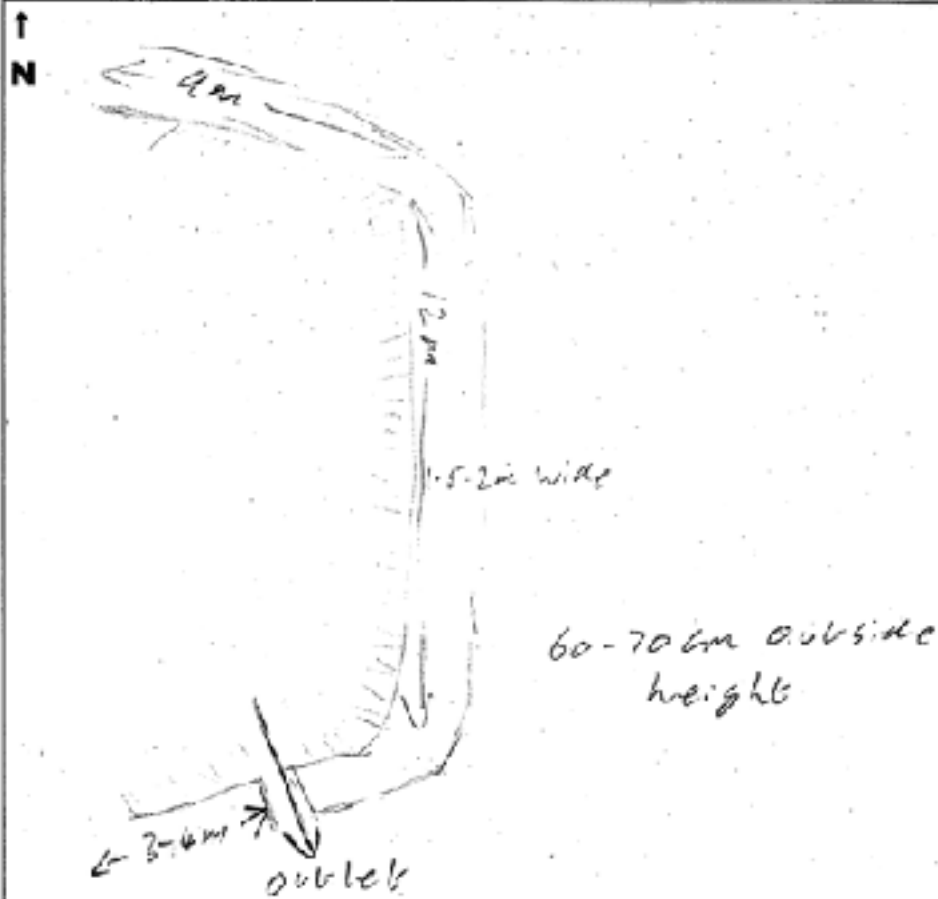 ↑
N
12m
1.5-2m wide
60-70cm outside
height
outlet